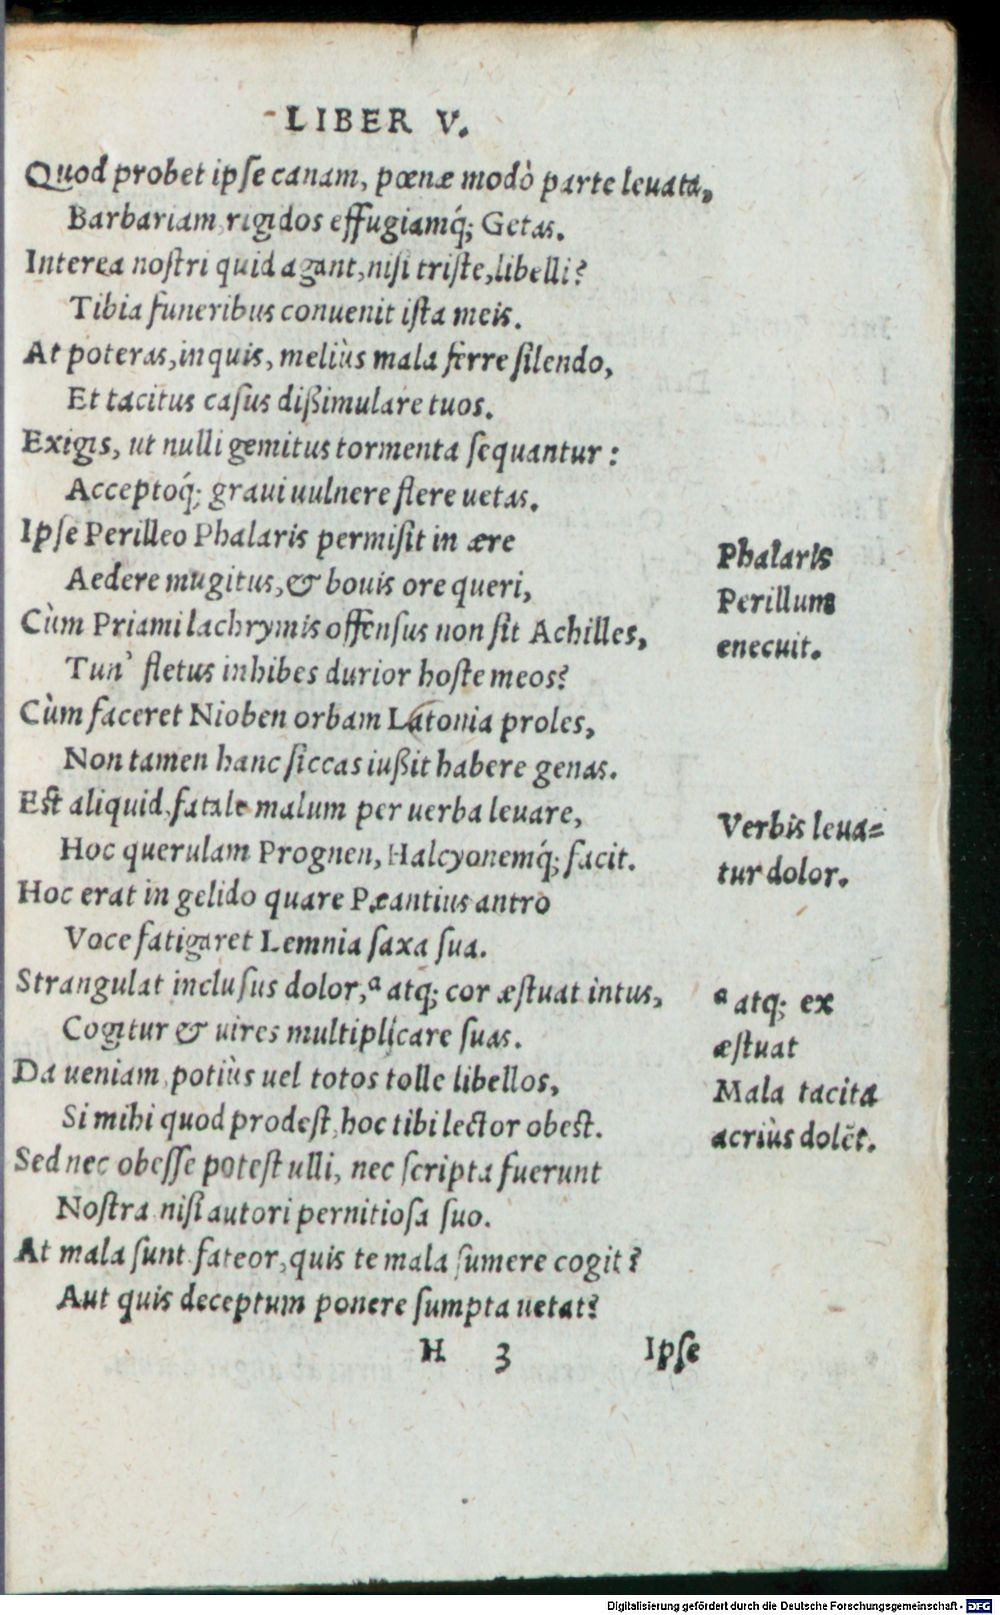 LIBER V.
Quod probet ipſe canam, pœnæ modò parte leuata,
Barbariam rigidos effugiamq́; Getas.
Interea noſtri quid agant, niſi triſte, libelli?
Tibia funeribus conuenit iſta meis.
At poteras, inquis, meliùs mala ferre ſilendo,
Et tacitus caſus dißimulare tuos.
Exigis, ut nulli gemitus tormenta ſequantur:
Acceptoq́; graui uulnere flere uetas.
Ipſe Perilleo Phalaris permiſit in ære
Aedere mugitus, & bouis ore queri,
Cùm Priami lachrymis offenſus non ſit Achilles,
Tun' fletus inhibes durior hoſte meos?
Cùm faceret Nioben orbam Latonia proles,
Non tamen hanc ſiccas iußit habere genas.
Eſt aliquid, fatale malum per uerba leuare,
Hoc querulam Prognen, Halcyonemq́; facit.
Hoc erat in gelido quare Pæantius antro
Voce fatigaret Lemnia ſaxa ſua.
Strangulat incluſus dolor, ᵃ atq; cor æſtuat intus,
Cogitur & uires multiplicare ſuas.
Da ueniam potiùs uel totos tolle libellos,
Si mihi quod prodeſt, hoc tibi lector obeſt.
Sed nec obeſſe poteſt ulli, nec ſcripta fuerunt
Noſtra niſi autori pernitioſa ſuo.
At mala ſunt fateor, quis te mala ſumere cogit?
Aut quis deceptum ponere ſumpta uetat?
H 3 Ipſe
Phalaris
Perillum
enecuit.
Verbis leua=
tur dolor.
ᵃ atq; ex
æſtuat
Mala tacita
acriùs dolẽt.
Digitalisierung gefördert durch die Deutsche Forschungsgemeinschaft - DFG